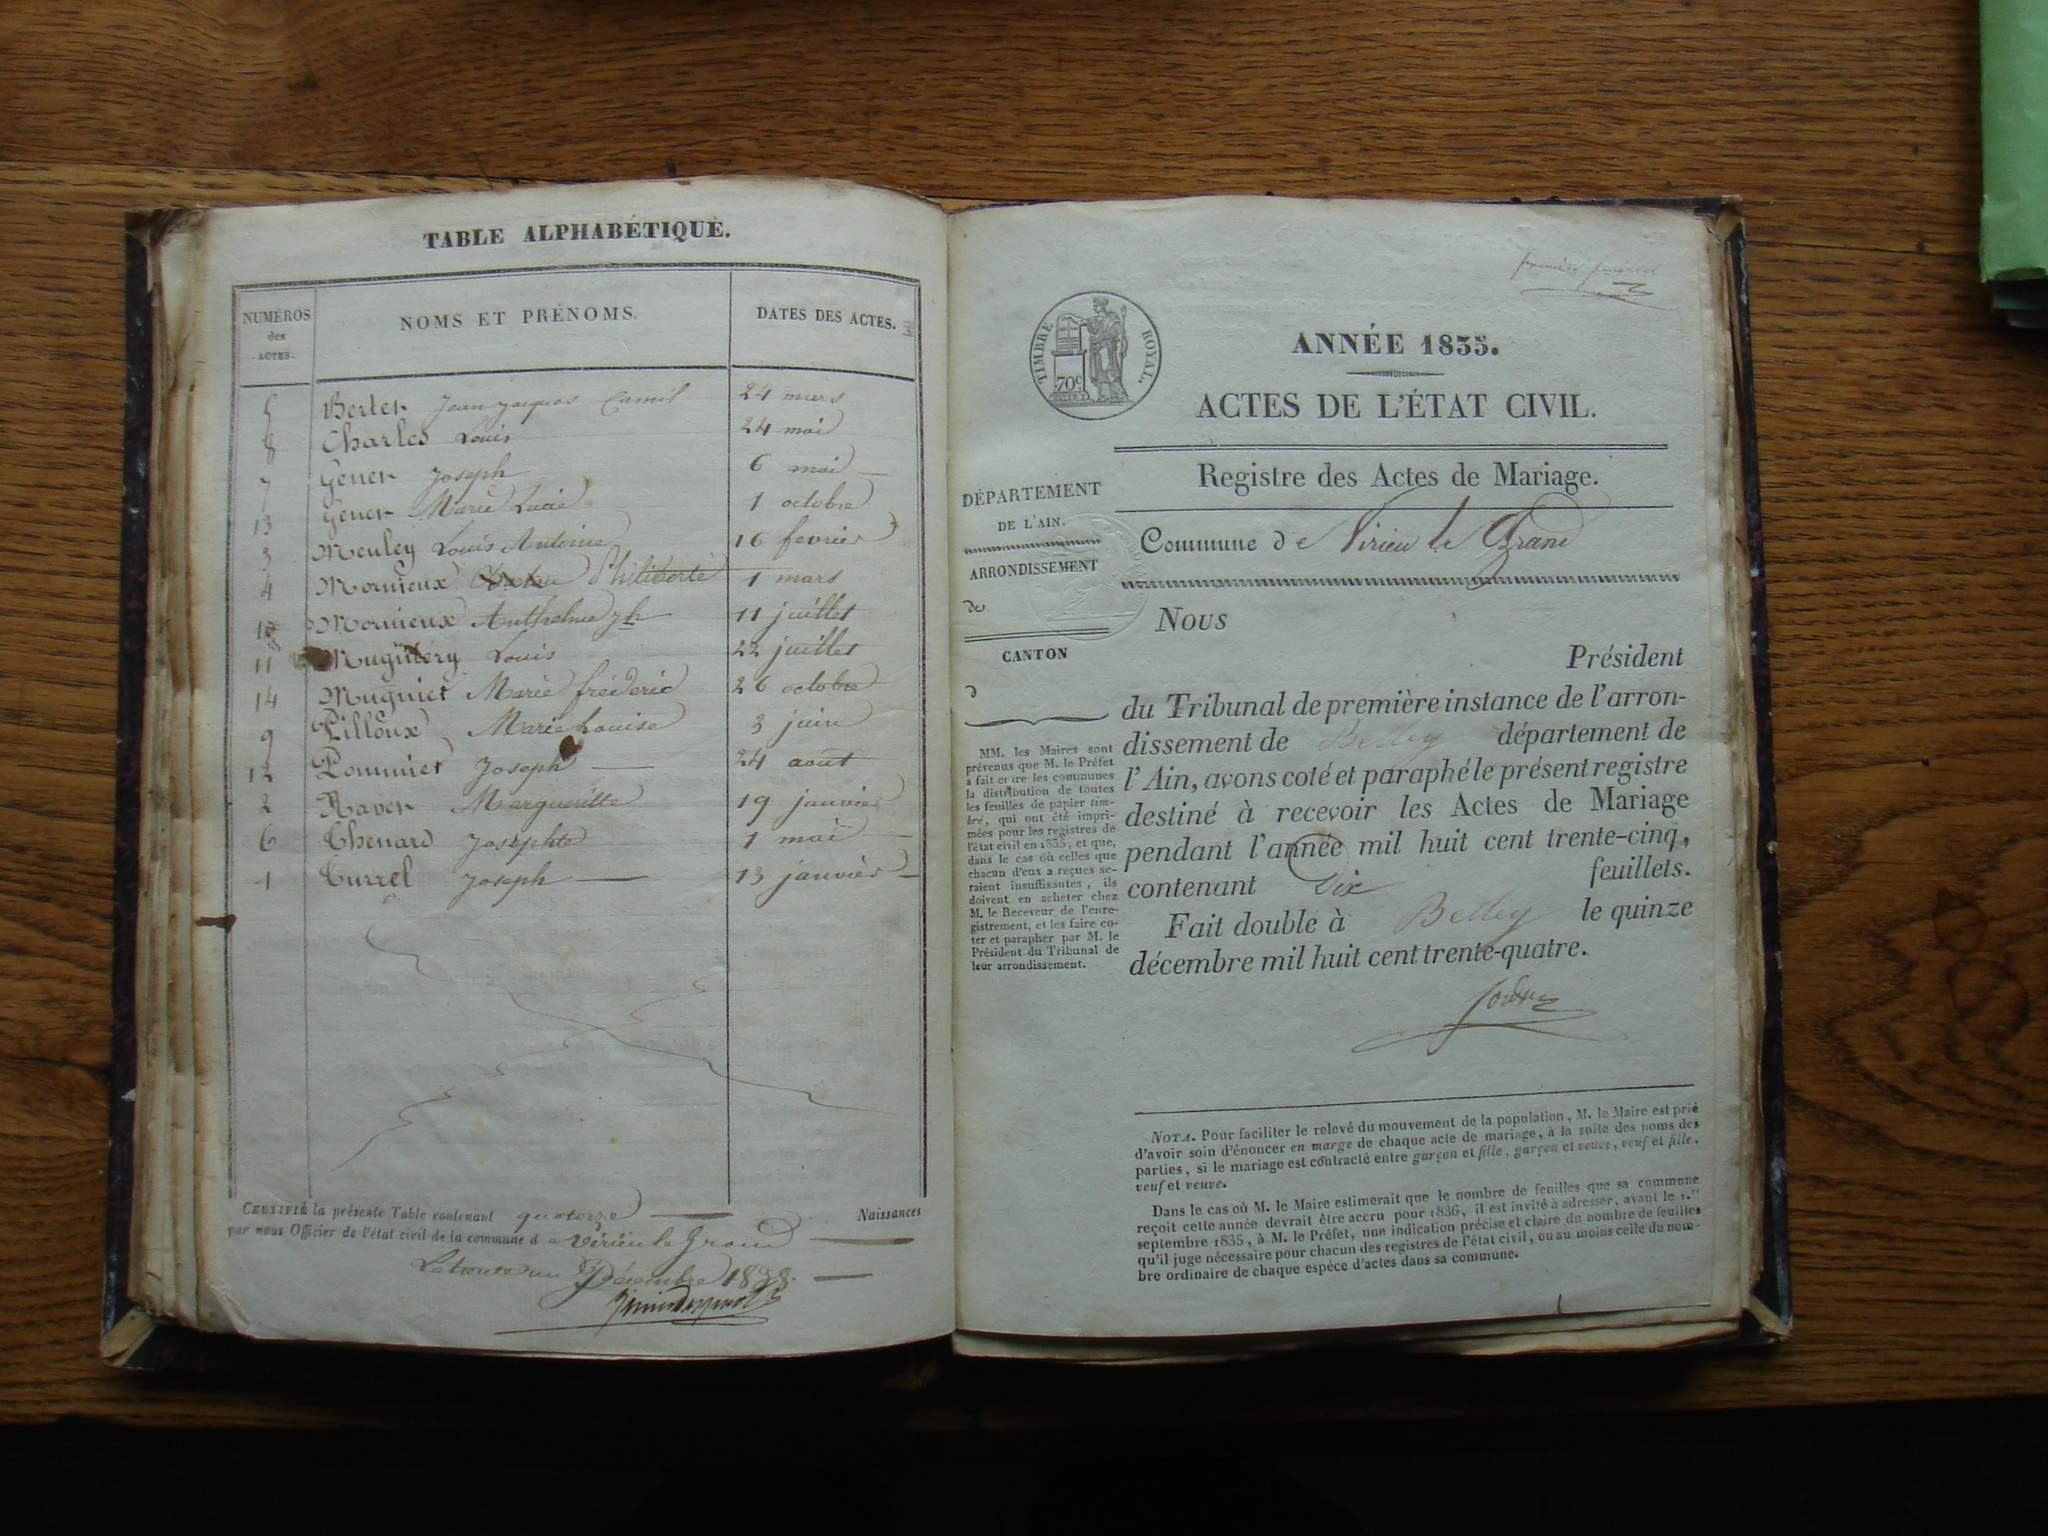 TABLE ALPHABÉTIQUE.
NUMÉROS des ACTES. NOMS ET PRÉNOMS. DATES DES ACTES.
5 Berter Jean Jacques Camil 24 mars
8 Charles Louis 24 mai
7 Gener Joseph 6 mai
13 Gener Marie Lucie 1 octobre
3 Meuley Louis Antoine 16 fevrier
4 Mornieux Philiberte 1 mars
10 Mornieux Anthelme jh 11 juillet
11 Louis 22 juillet
14 Mugnier Marie fréderic 26 octobre
9 Pilloux Marie Louise 3 juin
12 Pommier Joseph 24 aout
2 Raver Margueritte 19 janvier
6 Thenard Josephte 1 mai
1 Turrel Joseph 13 janvier
CERTIFIÉ la présente Table contenant quatorze Naissances
par nous Officier de l'état civil de la commune d e Virieu le Grand
Le trente un Décembre 1838.
premier feuillet
TIMBRE ROYAL.
70c
ANNÉE 1835.
ACTES DE L'ÉTAT CIVIL.
Registre des Actes de Mariage.
DÉPARTEMENT
DE L'AIN.
ARRONDISSEMENT
de
CANTON
d
MM. les Maires sont
prévenus que M. le Préfet
a fait entre les communes
la distribution de toutes
les feuilles de papier tim-
bré, qui ont été impri-
mées pour les registres de
l'état civil en 1835, et que,
dans le cas où celles que
chacun d'eux a reçues se-
raient insuffisantes, ils
doivent en acheter chez
M. le Receveur de l'enre-
gistrement, et les faire co-
ter et parapher par M. le
Président du Tribunal de
leur arrondissement.
Commune de Virieu le Grand
Nous
Président
du Tribunal de première instance de l'arron-
dissement de Belley département de
l'Ain, avons coté et paraphé le présent registre
destiné à recevoir les Actes de Mariage
pendant l'année mil huit cent trente-cinq,
contenant Dix feuillets.
Fait double à Belley le quinze
décembre mil huit cent trente-quatre.
NOTA. Pour faciliter le relevé du mouvement de la population, M. le Maire est prié
d'avoir soin d'énoncer en marge de chaque acte de mariage, à la suite des noms des
parties, si le mariage est contracté entre garçon et fille, garçon et veuve, veuf et fille,
veuf et veuve.
Dans le cas où M. le Maire estimerait que le nombre de feuilles que sa commune
reçoit cette année devrait être accru pour 1836, il est invité à adresser, avant le 1.er
septembre 1835, à M. le Préfet, une indication précise et claire du nombre de feuilles
qu'il juge nécessaire pour chacun des registres de l'état civil, ou au moins celle du nom-
bre ordinaire de chaque espèce d'actes dans sa commune.